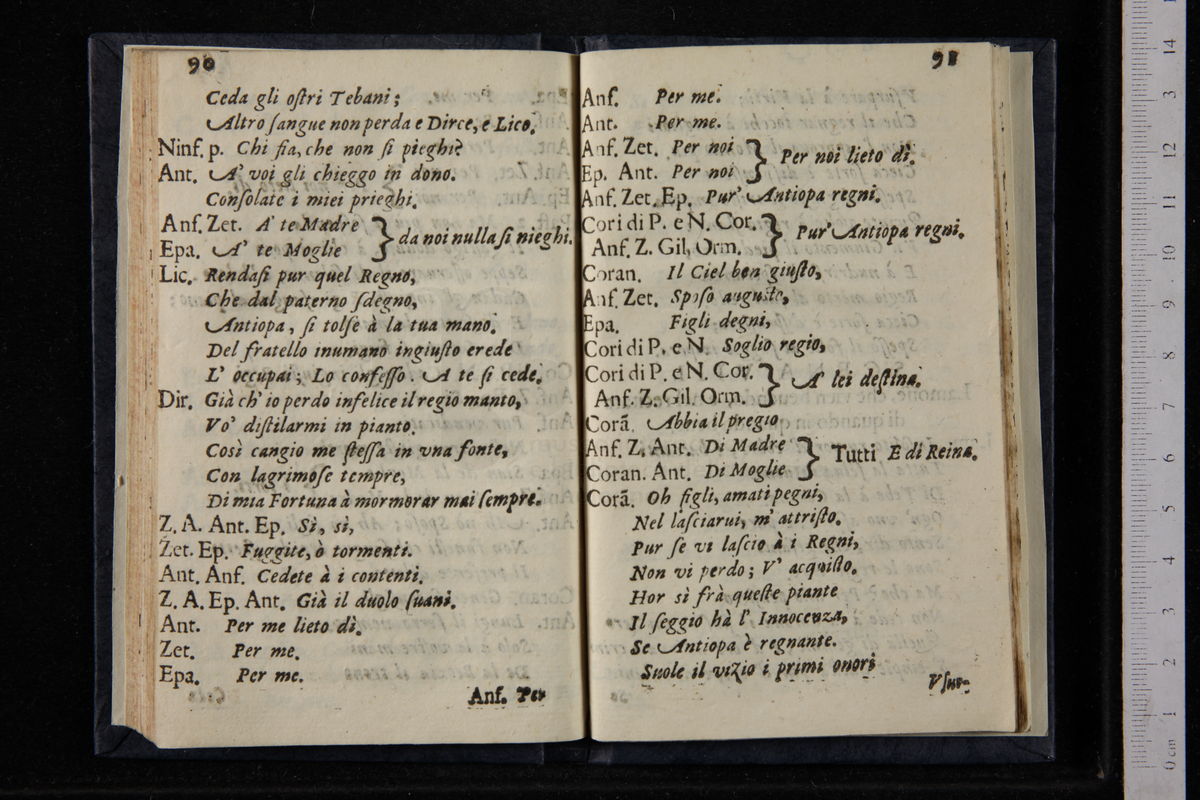 90
Ceda gli oſtri Tebani;
Altro ſangue non perda e Dirce, e Lico.
Ninf. p. Chi fia, che non ſi pieghi?
Ant. A' voi gli chieggo in dono.
Conſolate i miei prieghi.
Anf. Zet. A' te Madre
Epa. A' te Moglie } da noi nulla ſi nieghi.
Lic. Rendaſi pur quel Regno,
Che dal paterno ſdegno,
Antiopa, ſi tolſe à la tua mano.
Del fratello inumano ingiuſto erede
L' occupai; Lo confeſſo. A te ſi cede.
Dir. Già ch' io perdo infelice il regio manto,
Vo' diſtilarmi in pianto.
Così cangio me ſteſſa in vna fonte,
Con lagrimoſe tempre,
Di mia Fortuna à mormorar mai ſempre.
Z. A. Ant. Ep. Sì, sì,
Zet. Ep. Fuggite, ò tormenti.
Ant. Anf. Cedete à i contenti.
Z. A. Ep. Ant. Già il duolo ſuanì.
Ant. Per me lieto dì.
Zet. Per me.
Epa. Per me.
Anf. Per
91
Anf. Per me.
Ant. Per me.
Anf. Zet. Per noi
Ep. Ant. Per noi } Per noi lieto dì.
Anf. Zet. Ep. Pur' Antiopa regni.
Cori di P. e N. Cor.
Anf. Z. Gil. Orm. } Pur' Antiopa regni.
Coran. Il Ciel ben giuſto,
Anf. Zet. Spoſo auguſto,
Epa. Figli degni,
Cori di P. e N. Soglio regio,
Cori di P. e N. Cor.
Anf. Z. Gil. Orm. } A' lei deſtina.
Corã. Abbia il pregio
Anf. Z. Ant. Di Madre
Coran. Ant. Di Moglie } Tutti E di Reina.
Corã. Oh figli, amati pegni,
Nel laſciarui, m' attriſto.
Pur ſe vi laſcio à i Regni,
Non vi perdo; V' acquiſto.
Hor sì frà queſte piante
Il ſeggio hà l' Innocenza,
Se Antiopa è regnante.
Suole il vizio i primi onori
Vſur-